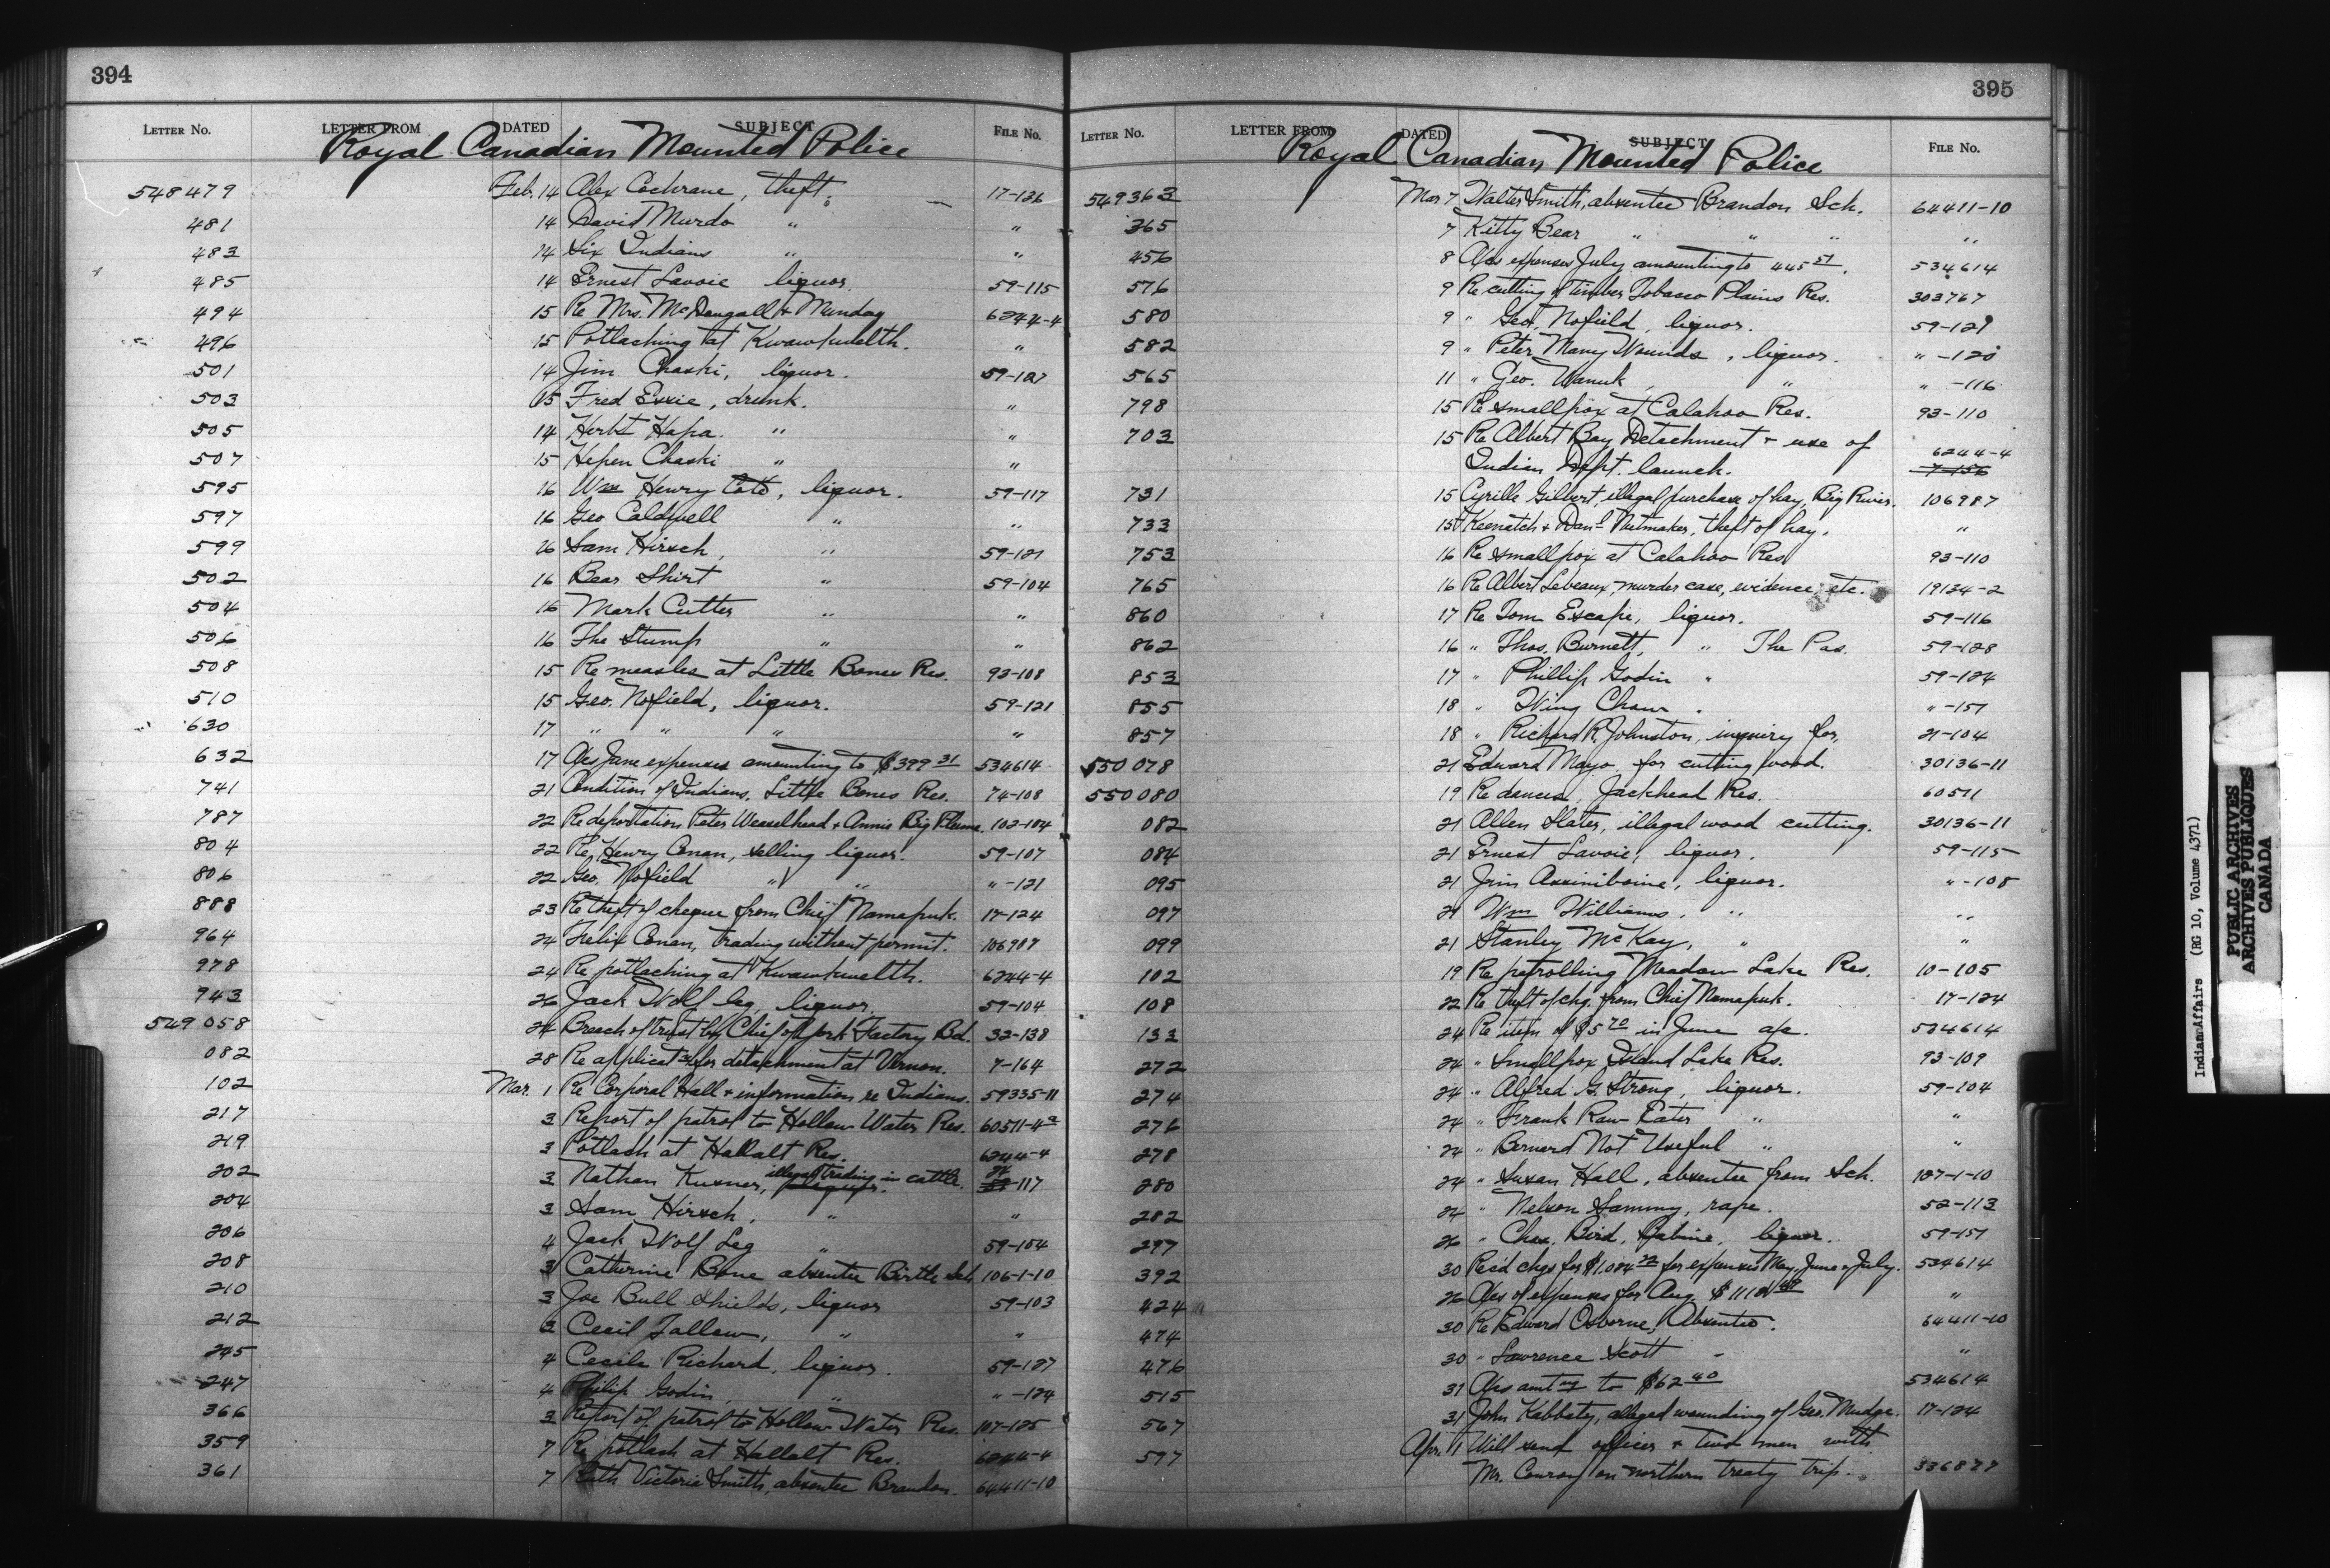 394
LETTER NO. LETTER FROM DATED SUBJECT FILE NO.
Royal Canadian Mounted Police
548479 Feb. 14 Alex Cochrane, theft. 17-126
481 14 David Murdo " "
483 14 Six Indians " "
485 14 Ernest Lavoie liquor. 59-115
494 15 Re Mrs. McDougall & Munday 6244-4
496 15 Potlaching at Kwawkwelth. "
501 14 Jim Chaski, liquor. 59-127
503 15 Fred Essie, drunk. "
505 14 Herbt Hapa. " "
507 15 Hepen Chaski " "
595 16 Wm Henry Cote, liquor. 59-117
597 16 Geo Caldwell " "
599 16 Sam Hirsch, " 59-121
502 16 Bear Shirt " 59-104
504 16 Mark Cutter " "
506 16 The Stump " "
508 15 Re measles at Little Bones Res. 93-108
510 15 Geo. Nofield, liquor. 59-121
630 17 " " " "
632 17 A/cs June expenses amounting to $399 31 534614
741 21 Condition of Indians, Little Bones Res. 74-108
787 22 Re deportation Peter Weaselhead & Annie Big Plume. 103-104
804 22 Re Henry Conan, selling liquor. 59-107
806 22 Geo. Nofield " " " -121
888 23 Re theft of cheque from Chief Namapuk. 17-124
964 24 Felix Conan, trading without permit. 106907
978 24 Re potlaching at Kwawkwelth. 6244-4
943 26 Jack Wolf leg, liquor. 59-104
549058 24 Breach of trust by Chief of York Factory Bd. 32-138
082 28 Re applicatn for detachment at Vernon. 7-164
102 Mar. 1 Re Corporal Hall & information re Indians. 59335-11
217 3 Report of patrol to Hollow Water Res. 60511-4a
219 3 Potlach at Halalt Res. 6244-4
202 3 Nathan Kusner, illegal trading in cattle. 24-117
204 3 Sam Hirsch, " "
206 4 Jack Wolf Leg " 59-104
208 3 Catherine Bone absentee Birtle Sch. 106-1-10
210 3 Joe Bull Shields, liquor 59-103
212 3 Cecil Tallow, " "
245 4 Cecile Richard, liquor. 59-127
247 4 Philip Godin, " " -124
366 3 Report of patrol to Hollow Water Res. 107-125
359 7 Re potlach at Hallalt Res. 6244-4
361 7 Ruth Victoria Smith, absentee Brandon. 64411-10
395
LETTER NO. LETTER FROM DATED SUBJECT FILE NO.
Royal Canadian Mounted Police
549363 Mar 7 Walter Smith, absentee Brandon Sch. 64411-10
365 7 Kitty Bear " " " "
456 8 A/cs expenses July amounting to 445 51. 534614
576 9 Re cutting of timber Tobacco Plains Res. 303767
580 9 " Geo. Nofield, liquor. 59-121
582 9 " Peter Many Wounds, liquor. " -120
565 11 " Geo. Wanuk, " " -116
798 15 Re smallpox at Calahoo Res. 93-110
703 15 Re Albert Bay Detachment & use of
Indian Dept. launch. 6244-4
731 15 Cyrille Gilbert, illegal purchase of hay, Big River. 106987
733 15 Keenatch & Danl Nutmaker, theft of hay. "
753 16 Re smallpox at Calahoo Res 93-110
765 16 Re Albert Lebeaux, murder case, evidence, etc. 19134-2
860 17 Re Tom Escape, liquor. 59-116
862 16 " Thos. Burnett, " The Pas. 59-128
853 17 " Phillip Godin " 59-124
855 18 " Wing Chow . " -151
857 18 " Richard R. Johnston, inquiry for, 21-104
550078 21 Edward Mayo, for cutting wood. 30136-11
550080 19 Re dances, Jackhead Res. 60511
082 21 Allen Slater, illegal wood cutting. 30136-11
084 21 Ernest Lavoie, liquor. 59-115
095 21 Jim Assiniboine, liquor. " -108
097 21 Wm Williams, " "
099 21 Stanley McKay, " "
102 19 Re patrolling Meadow Lake Res. 10-105
108 22 Re theft of chq. from Chief Namapuk. 17-124
133 24 Re item of $5 70 in June a/c. 534614
272 24 " Smallpox Island Lake Res. 93-109
274 24 " Alfred G. Strong, liquor. 59-104
276 24 " Frank Raw Eater " "
278 24 " Bernard Not Useful " "
280 24 " Susan Hall, absentee from Sch. 127-1-10
282 24 " Nelson Sammy, rape. 52-113
297 26 " Chas. Bird, Babine, liquor. 59-151
392 30 Rec'd chqs for $1,084 for expenses May, June & July. 534614
424 26 A/cs of expenses for Aug. "
474 30 Re Edward Osborne, Absentee. 64411-10
476 30 " Lawrence Scott " "
515 31 A/cs amtng to $62 40 534614
567 31 John Kabbaty, alleged wounding of Geo. Mudge. 17-124
597 Apr. 1 Will send officer & two men with
Mr. Conroy on northern treaty trip. 336877
Indian Affairs (RG 10, Volume 4371)
PUBLIC ARCHIVES
ARCHIVES PUBLIQUES
CANADA